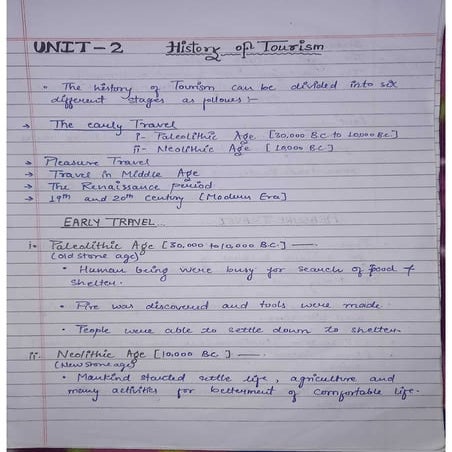 UNIT-2 History of Tourism
• The history of Tourism can be divided into six
different stages as follows:-
→ The early Travel
i- Paleolithic Age [30,000 B.C to 10,000 B.C]
ii- Neolithic Age [10,000 B.C]
→ Pleasure Travel
→ Travel in Middle Age
→ The Renaissance period
→ 19th and 20th century [Modern Era]
EARLY TRAVEL...
i- Paleolithic Age [30,000 to 10,000 B.C.] —
(old stone age)
• Human being were busy for search of food +
shelter.
• Fire was discovered and tools were made.
• People were able to settle down to shelter.
ii- Neolithic Age [10,000 B.C.] —
(New stone age)
• Mankind started settle life, agriculture and
many activities for betterment of comfortable life.